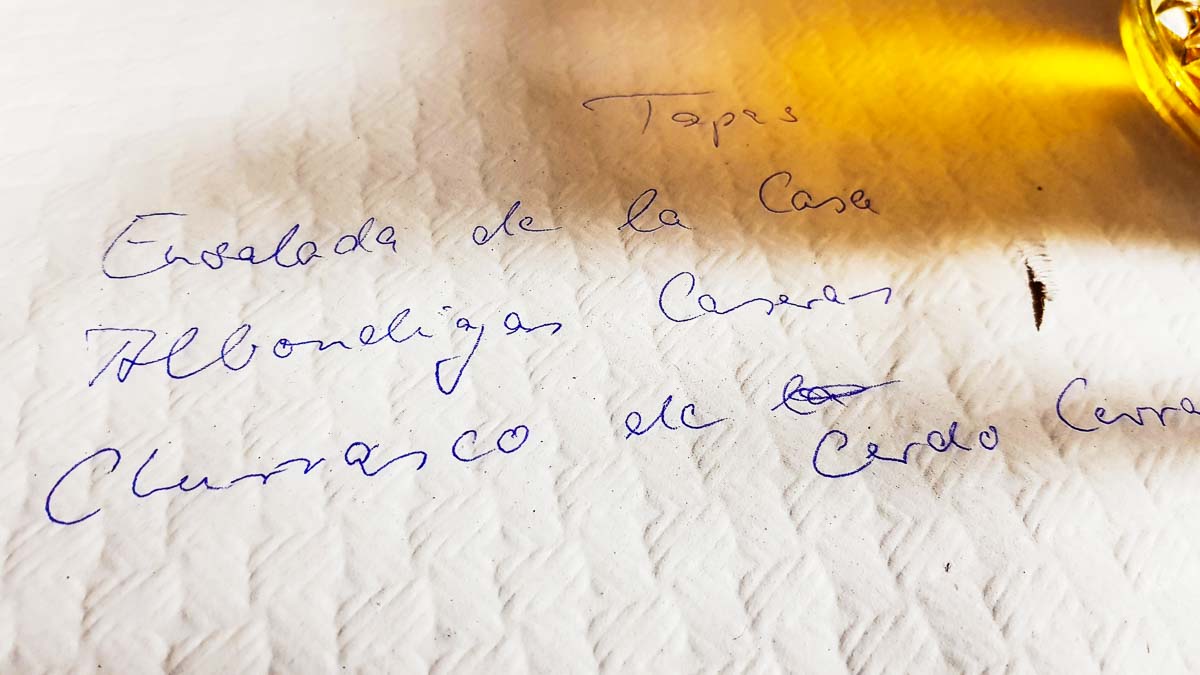 Tapas
Ensalada de la Casa
Albondigas Caseras
Churrasco de Cerdo